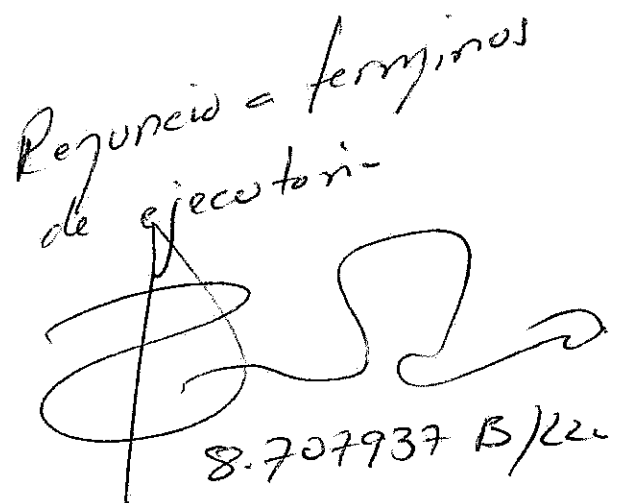 Renuncio a terminos
de ejecutori-
8.707937 B/lla